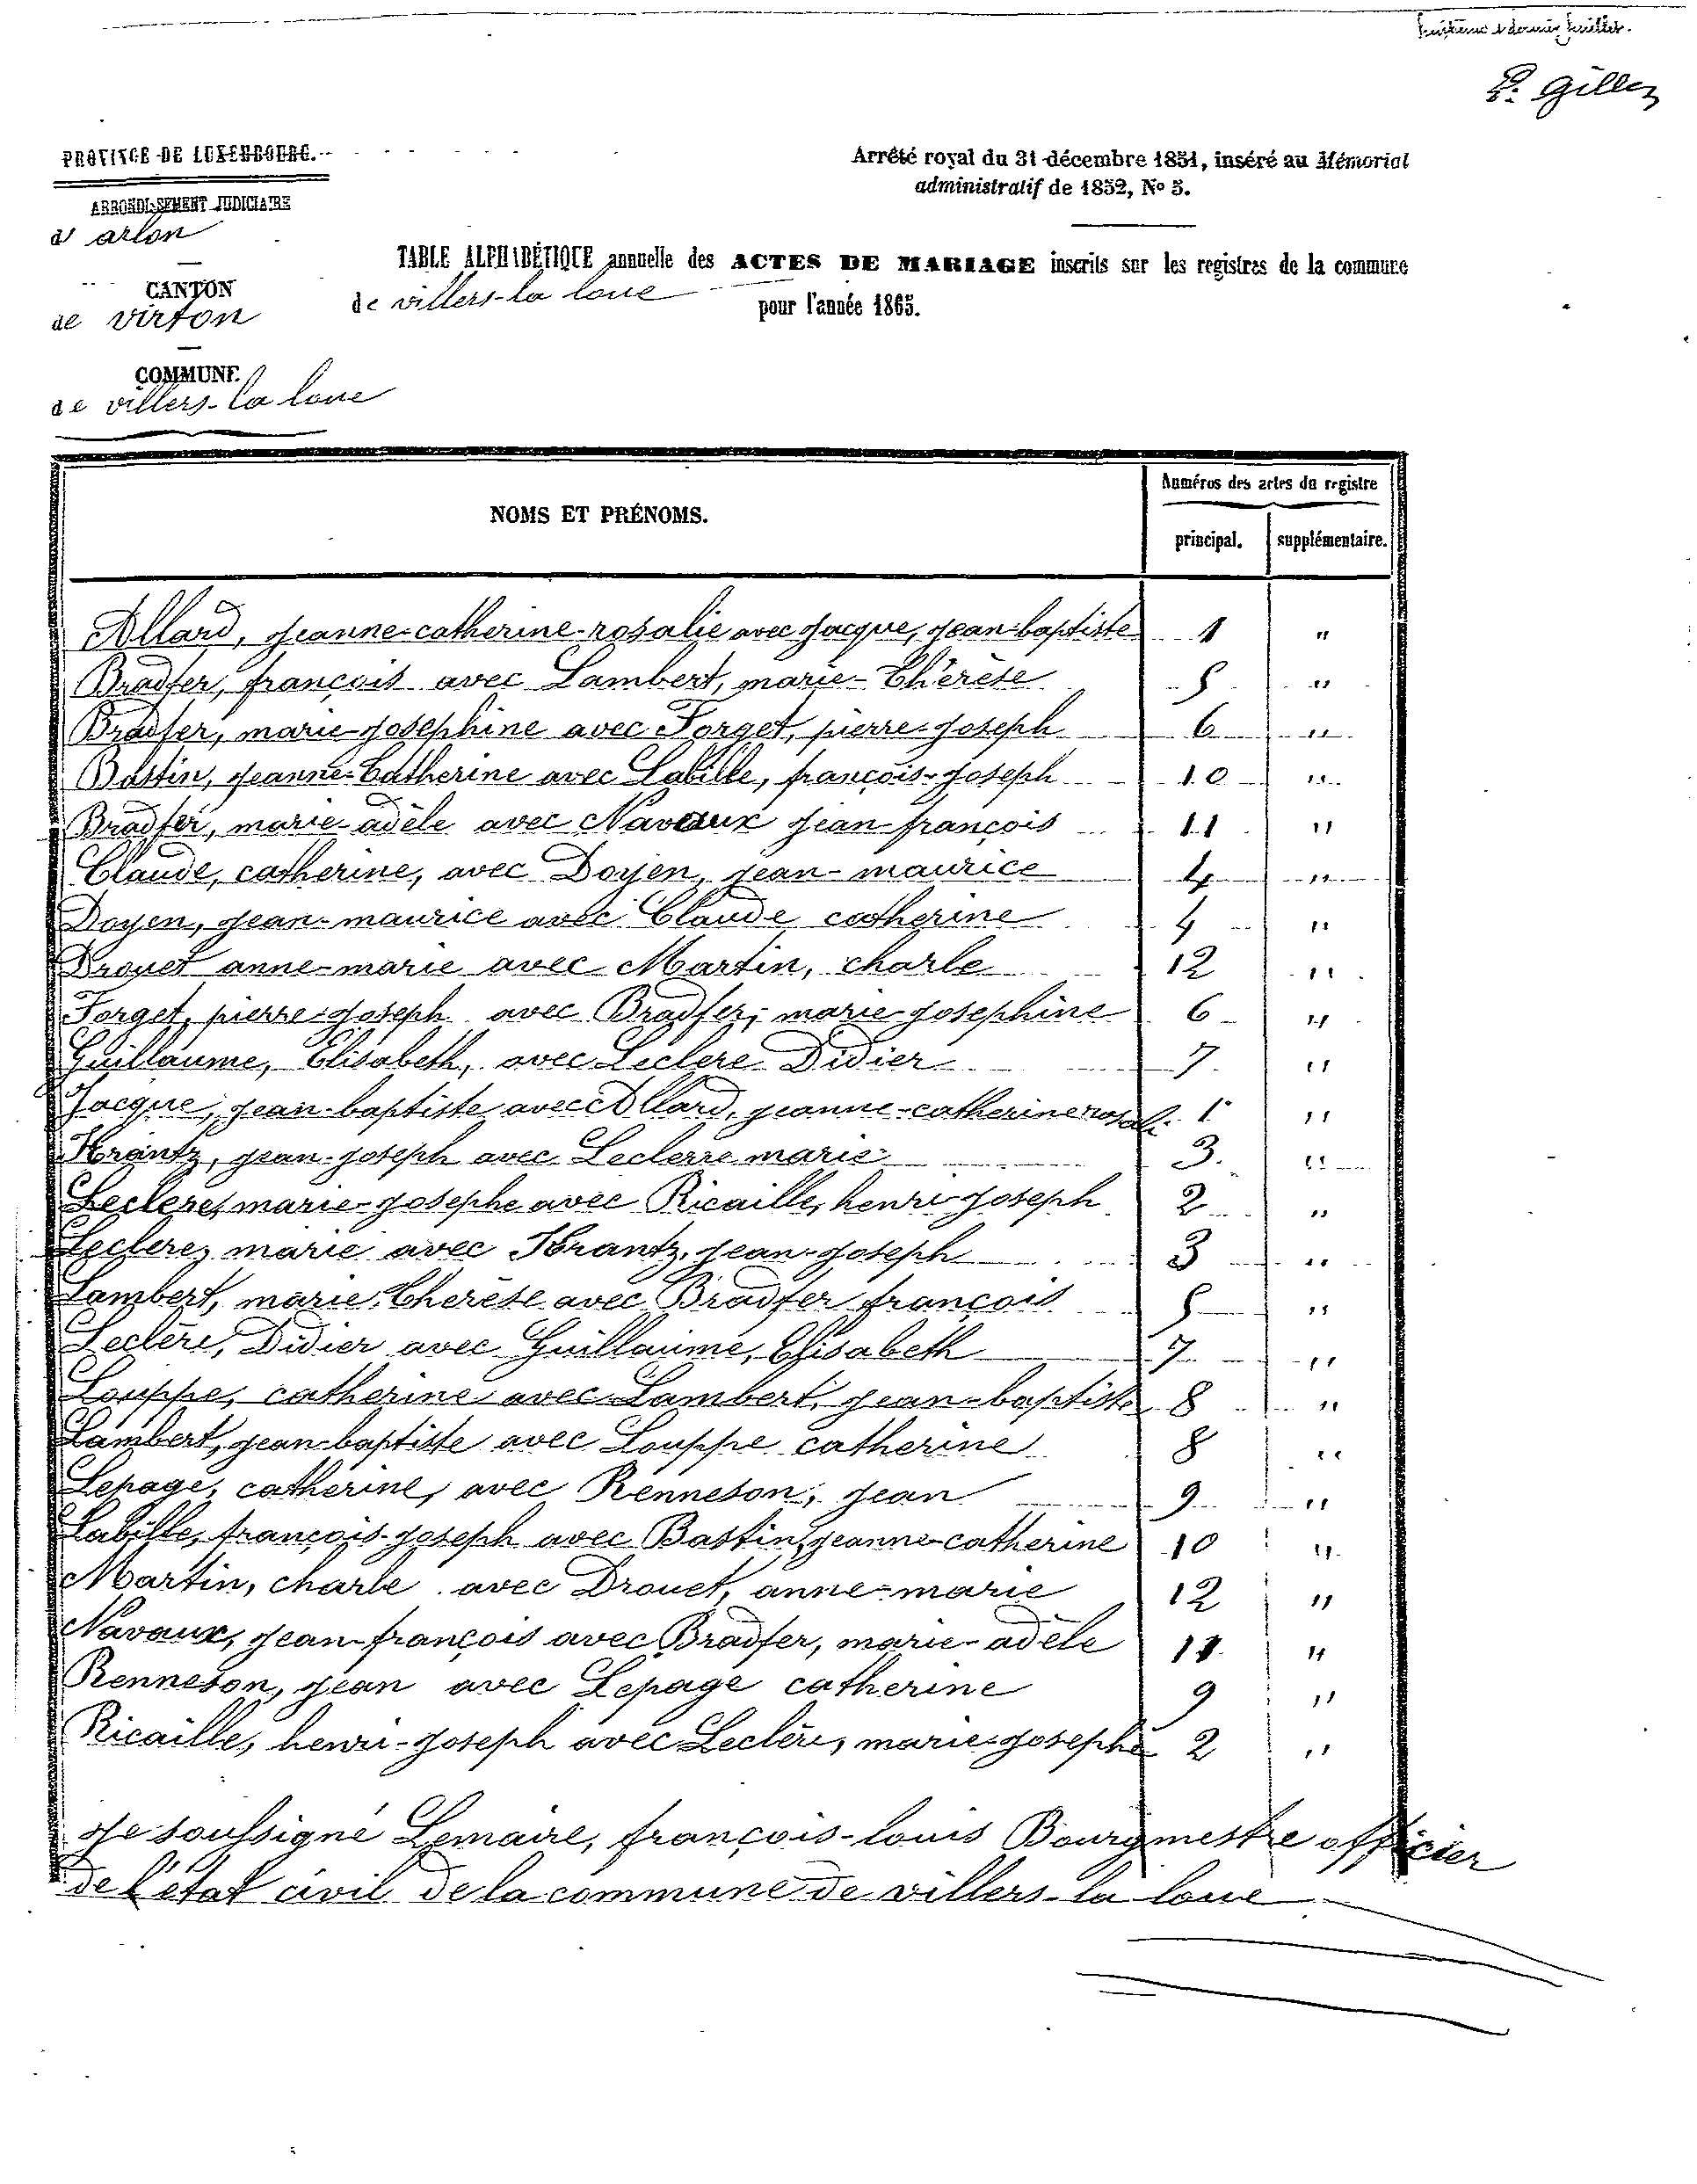 huitième et dernier feuillet.
P. Gillez
PROVINCE DE LUXEMBOURG.
ARRONDISSEMENT JUDICIAIRE
d'arlon
CANTON
de virton
COMMUNE
de villers-la loue
Arrêté royal du 31 décembre 1851, inséré au Mémorial
administratif de 1852, No 5.
TABLE ALPHABÉTIQUE annuelle des ACTES DE MARIAGE inscrits sur les registres de la commune
de villers-la loue pour l'année 1865.
NOMS ET PRÉNOMS. Numéros des actes du registre
principal. supplémentaire.
Allard, jeanne-catherine-rosalie avec Jacque, jean-baptiste 1 "
Bradfer, françois avec Lambert, marie-Thérèse 5 "
Bradfer, marie-josephine avec Forget, pierre-joseph 6 "
Bastin, jeanne-Catherine avec Labille, françois-joseph 10 "
Bradfer, marie-adèle avec Navaux jean-françois 11 "
Claude, catherine, avec Doyen, jean-maurice 4 "
Doyen, jean-maurice avec Claude catherine 4 "
Drouet anne-marie avec Martin, charle 12 "
Forget, pierre-joseph avec Bradfer, marie-josephine 6 "
Guillaume, Elisabeth, avec Leclere Didier 7 "
Jacque, jean-baptiste avec Allard, jeanne-catherine rosali 1 "
Krantz, jean-joseph avec Leclerre marie 3 "
Leclere, marie-josephe avec Ricaille, henri joseph 2 "
Leclere, marie avec Krantz, jean-joseph 3 "
Lambert, marie, Therèse avec Bradfer françois 5 "
Leclère, Didier avec Guillaume, Elisabeth 7 "
Louppe, catherine avec Lambert, jean-baptiste 8 "
Lambert, jean-baptiste avec Louppe catherine 8 "
Lepage, catherine, avec Renneson, jean 9 "
Labille, françois-joseph avec Bastin, jeanne-catherine 10 "
Martin, charle avec Drouet, anne-marie 12 "
Navaux, jean-françois avec Bradfer, marie-adèle 11 "
Renneson, jean avec Lepage catherine 9 "
Ricaille, henri-joseph avec Leclère, marie-josephe 2 "
je soussigné Lemaire, françois-louis Bourgmestre officier
de l'état civil de la commune de villers-la loue